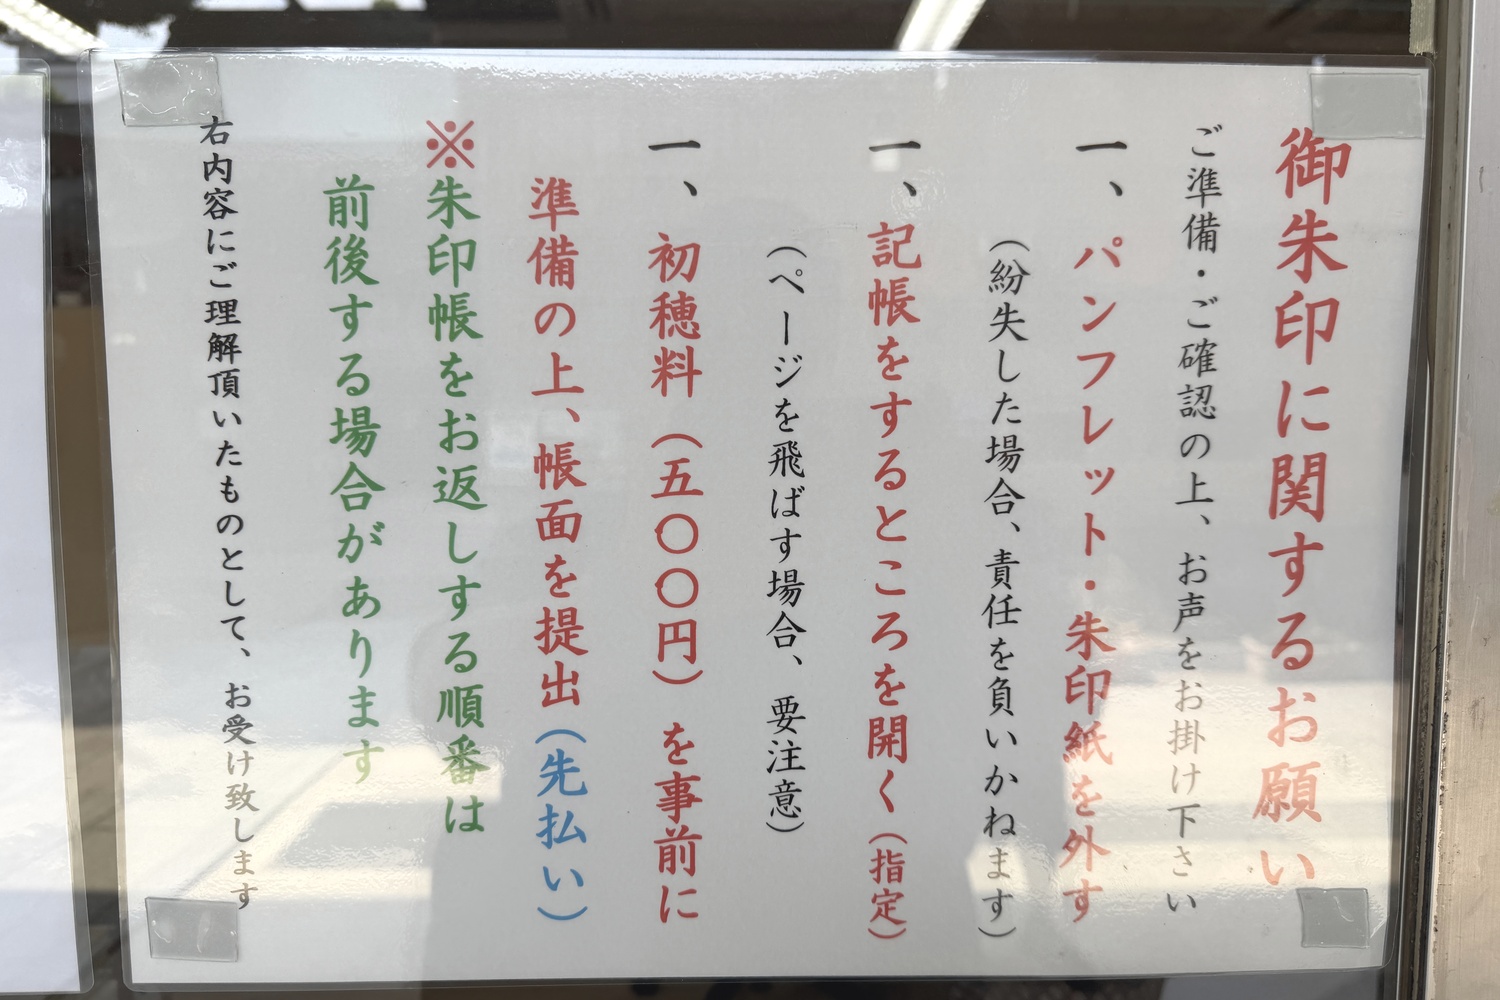 御朱印に関するお願い
ご準備・ご確認の上、お声をお掛け下さい
一、パンフレット・朱印紙を外す
（紛失した場合、責任を負いかねます）
一、記帳をするところを開く（指定）
（ページを飛ばす場合、要注意）
一、初穂料（五〇〇円）を事前に
準備の上、帳面を提出（先払い）
※朱印帳をお返しする順番は
前後する場合があります
右内容にご理解頂いたものとして、お受け致します